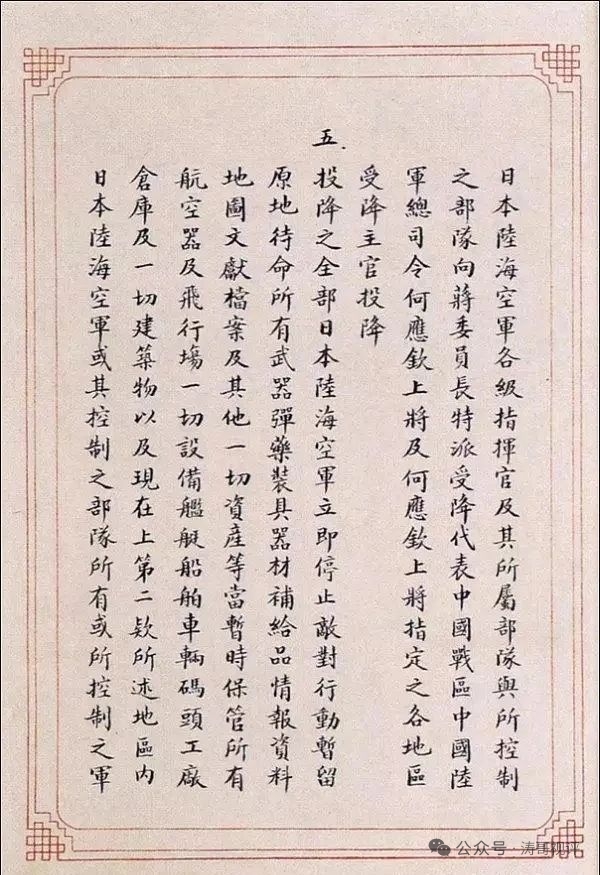 日本陸海空軍各級指揮官及其所屬部隊與所控制
之部隊向蔣委員長特派受降代表中國戰區中國陸
軍總司令何應欽上將及何應欽上將指定之各地區
受降主官投降
五.
投降之全部日本陸海空軍立即停止敵對行動暫留
原地待命所有武器彈藥裝具器材補給品情報資料
地圖文獻檔案及其他一切資產等當暫時保管所有
航空器及飛行場一切設備艦艇船舶車輛碼頭工廠
倉庫及一切建築物以及現在上第二欵所述地區內
日本陸海空軍或其控制之部隊所有或所控制之軍
公众号·涛哥视评